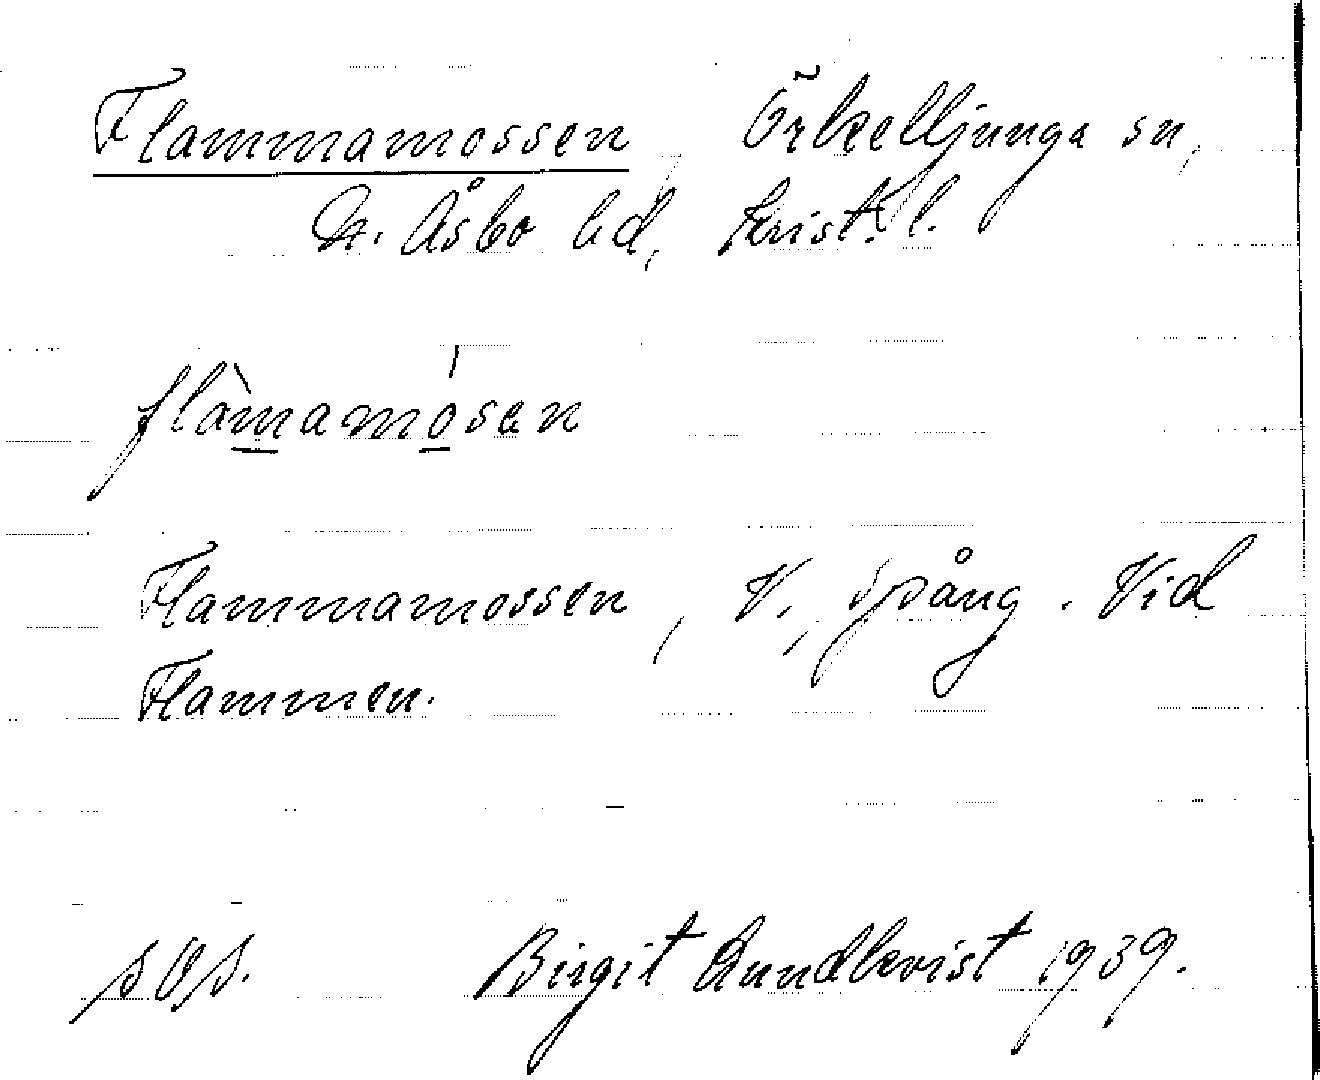 Flammamossen, Örkelljunga sn,
N. Åsbo hd, Krist. l.
flàmamósen
Flammamossen, V., Spång. Vid
Flammen.
Birgit Lundkvist 1939.